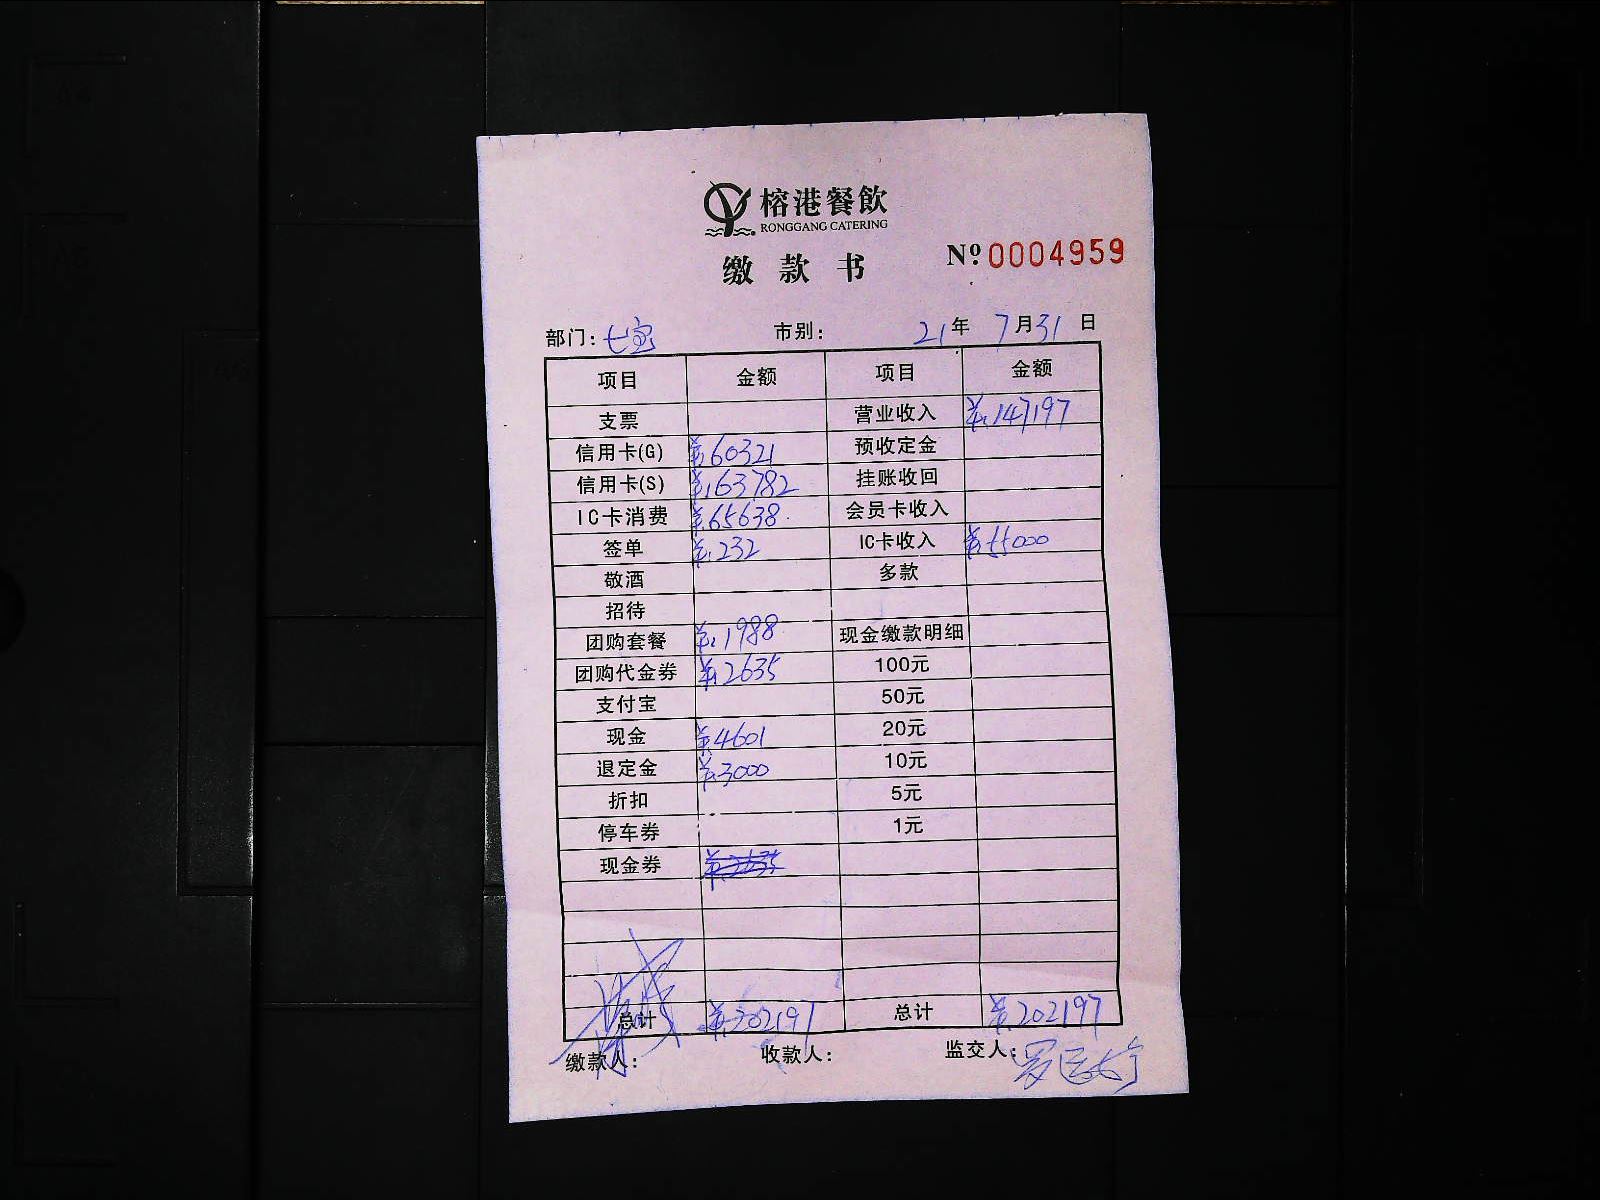 榕港餐飲
RONGGANG CATERING
缴款书 Nº 0004959
部门: 七宝 市别: 21年 7月31日
项目 金额 项目 金额
支票 营业收入 ¥147197
信用卡(G) ¥60321 预收定金
信用卡(S) ¥63782 挂账收回
IC卡消费 ¥65638 会员卡收入
签单 ¥232 IC卡收入 ¥55000
敬酒 多款
招待
团购套餐 ¥1988 现金缴款明细
团购代金券 ¥2635 100元
支付宝 50元
现金 ¥4601 20元
退定金 ¥3000 10元
折扣 5元
停车券 1元
现金券
总计 ¥202197 总计 ¥202197
缴款人: 收款人: 监交人: